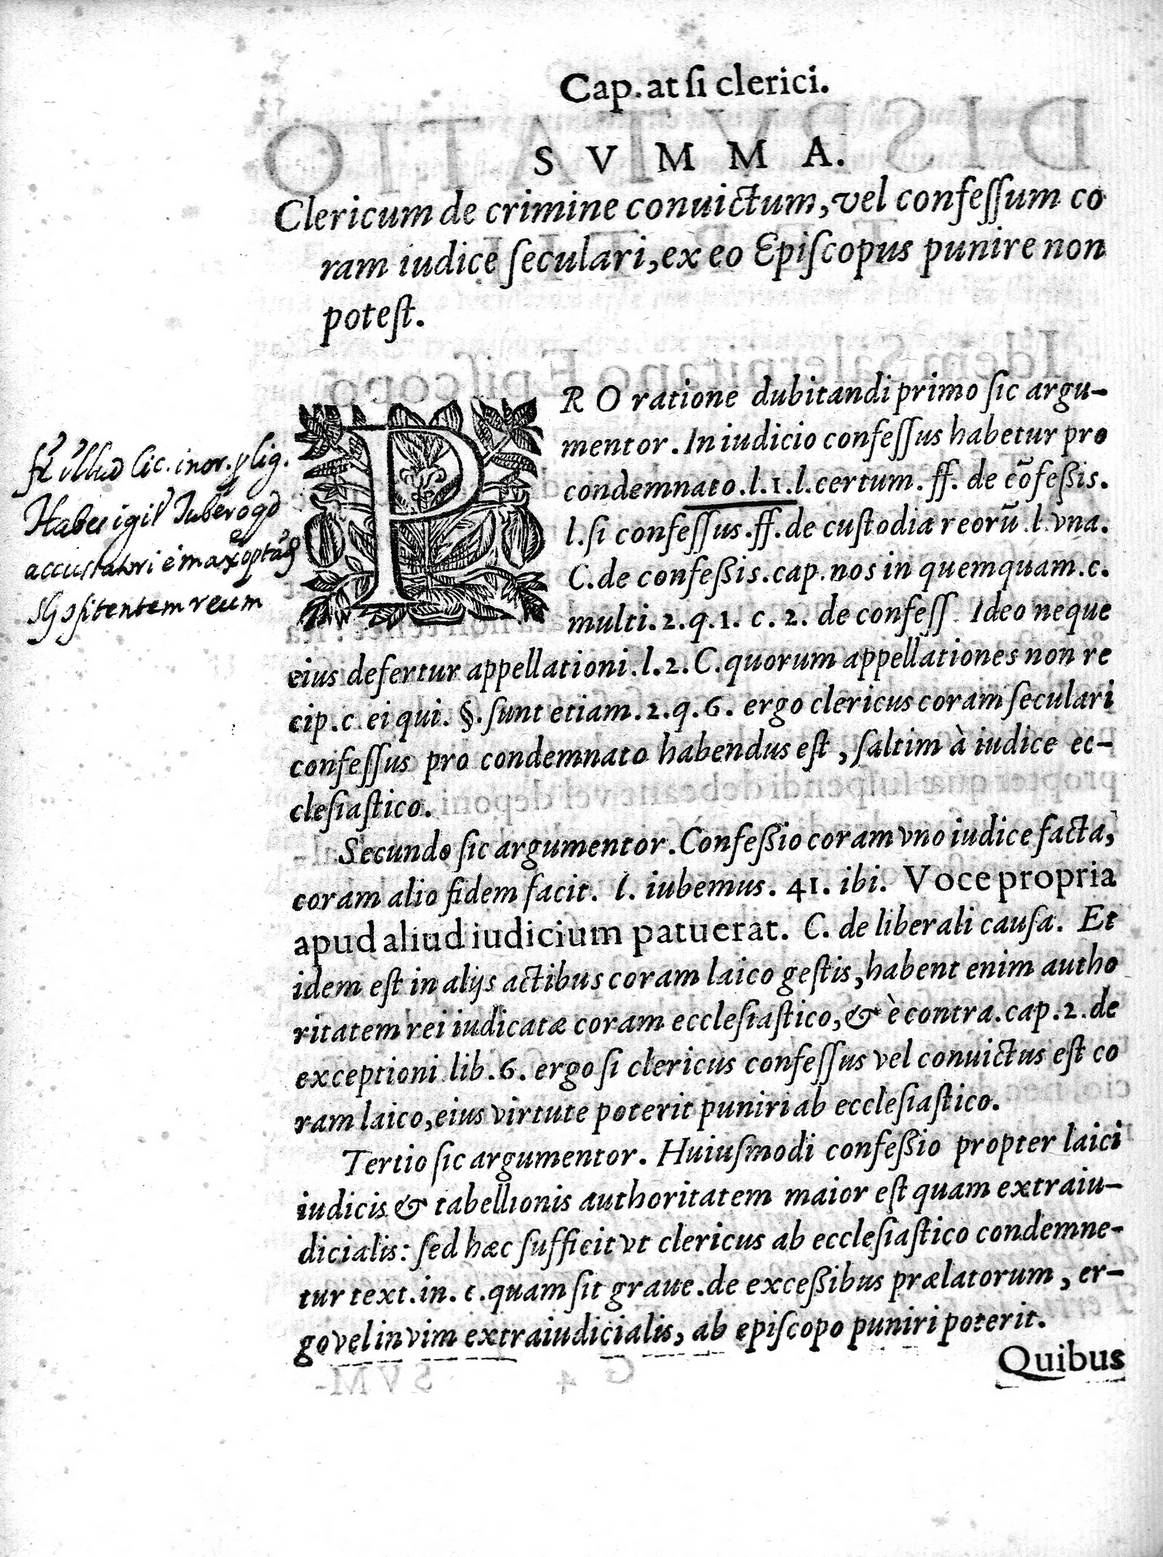 Cap. at ſi clerici.
S V M M A.
Clericum de crimine conuictum, vel confeſſum co
ram iudice ſeculari, ex eo Epiſcopus punire non
poteſt.
PRO ratione dubitandi primo ſic argu-
mentor. In iudicio confeſſus habetur pro
condemnato. l. 1. l. certum. ff. de cõfeßis.
l. ſi confeſſus. ff. de cuſtodia reorũ. l. vna.
C. de confeßis. cap. nos in quemquam. c.
multi. 2. q. 1. c. 2. de confeſſ. Ideo neque
eius defertur appellationi. l. 2. C. quorum appellationes non re
cip. c. ei qui. §. ſunt etiam. 2. q. 6. ergo clericus coram ſeculari
confeſſus pro condemnato habendus eſt, ſaltim à iudice ec-
cleſiaſtico.
Secundo ſic argumentor. Confeßio coram vno iudice facta,
coram alio fidem facit. l. iubemus. 41. ibi. Voce propria
apud aliud iudicium patuerat. C. de liberali cauſa. Et
idem eſt in alijs actibus coram laico geſtis, habent enim autho
ritatem rei iudicatæ coram eccleſiaſtico, & è contra. cap. 2. de
exceptioni lib. 6. ergo ſi clericus confeſſus vel conuictus eſt co
ram laico, eius virtute poterit puniri ab eccleſiaſtico.
Tertio ſic argumentor. Huiuſmodi confeßio propter laici
iudicis & tabellionis authoritatem maior eſt quam extraiu-
dicialis: ſed hæc ſufficit vt clericus ab eccleſiaſtico condemne-
tur text. in. c. quam ſit graue. de exceßibus prælatorum, er-
go vel in vim extraiudicialis, ab epiſcopo puniri poterit.
Quibus
illud Cic. in or. p lig.
Habes igit Tubero qd
accusatori
reum